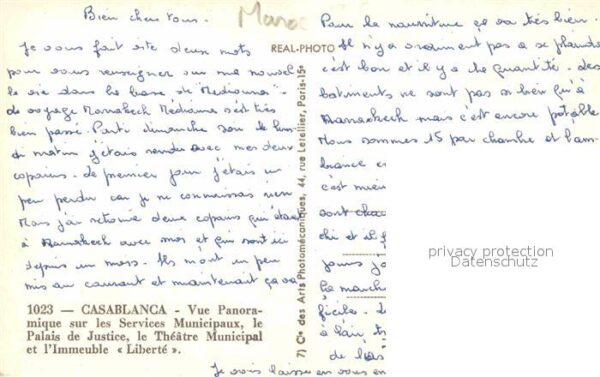 Bien chers tous.
Maroc
Je vous fait cete deux mots
pour vous renseigner sur ma nouvel
le vie dans la base de Mediouna
de voyage Marrakech Mediouna s'est très
bien passé. Parti dimanche soir le lun
di matin j'étais rendu avec mes deux
copains. de premier jour j'étais un
peu perdu car je ne connaissais rien
Mais j'ai retrouvé deux copains qui étaient
à Marrakech avec moi et qui sont ici
depuis un mois. Ils m'ont un peu
mis au courant et maintenant ça va
1023 — CASABLANCA - Vue Panora-
mique sur les Services Municipaux, le
Palais de Justice, le Théâtre Municipal
et l'Immeuble « Liberté ».
REAL-PHOTO
7) Cie des Arts Photomécaniques, 44, rue Letellier, Paris-15e
Pour la nourriture ça va très bien.
Il n'y a vraiment pas a se plaindre
c'est bon et il y a la quantité. des
batiments ne sont pas si bien qu'à
Marrakech mais c'est encore potable
Nous sommes 15 par chambre et l'am
biance e
c'est mieu
sont chac
chi et il f
jours j
la march
faciles.
à l'air, t
de l
Je vais laisser en vous en
privacy protection
Datenschutz